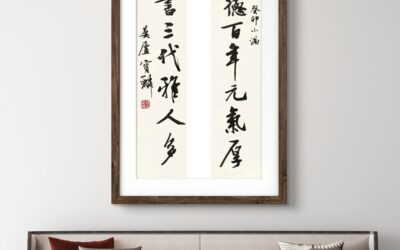 癸卯小滿
德百年元氣厚
書三代雅人多